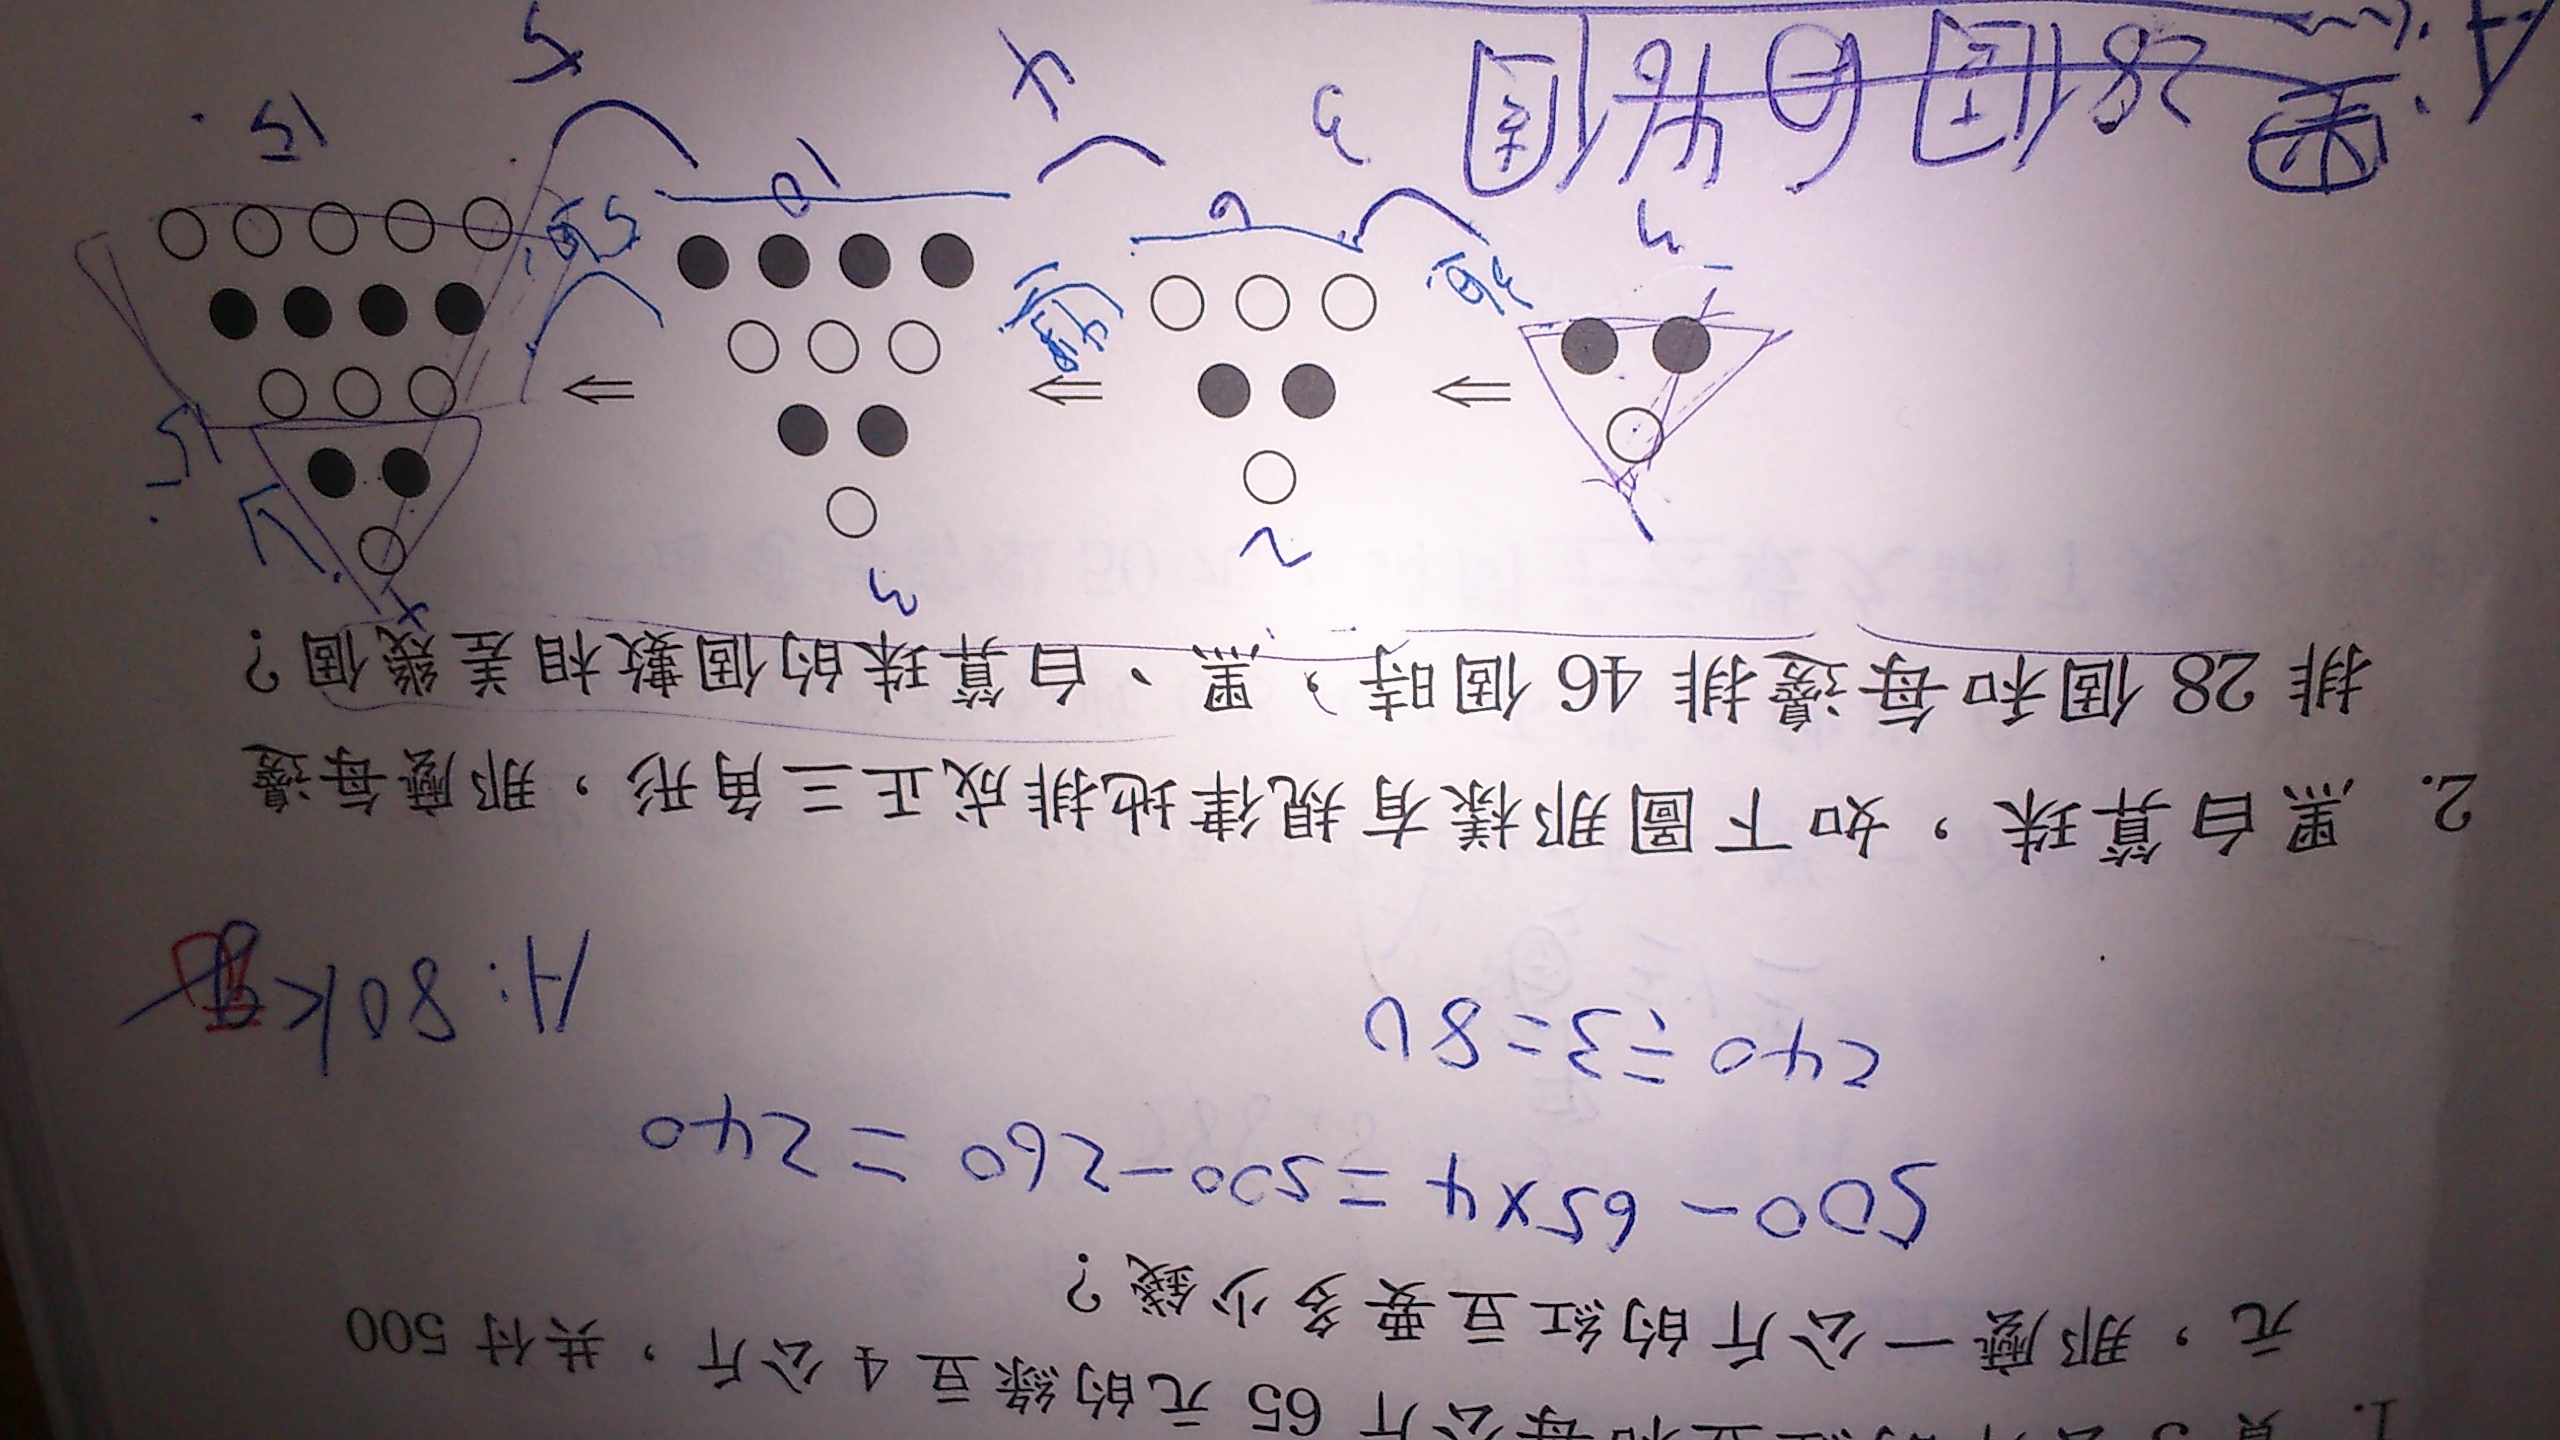 1. 買 3 公斤的紅豆和每公斤 65 元的綠豆 4 公斤，共付 500
元，那麼一公斤的紅豆要多少錢？
500 - 65×4 = 500 - 260 = 240
240 ÷ 3 = 80
A: 80
2. 黑白算珠，如下圖那樣有規律地排成正三角形，那麼每邊
排 28 個和每邊排 46 個時，黑、白算珠的個數相差幾個？
3
2
⇒ ⇒ ⇒
15
3
6
10
15
3
4
5
A:
28個
46個